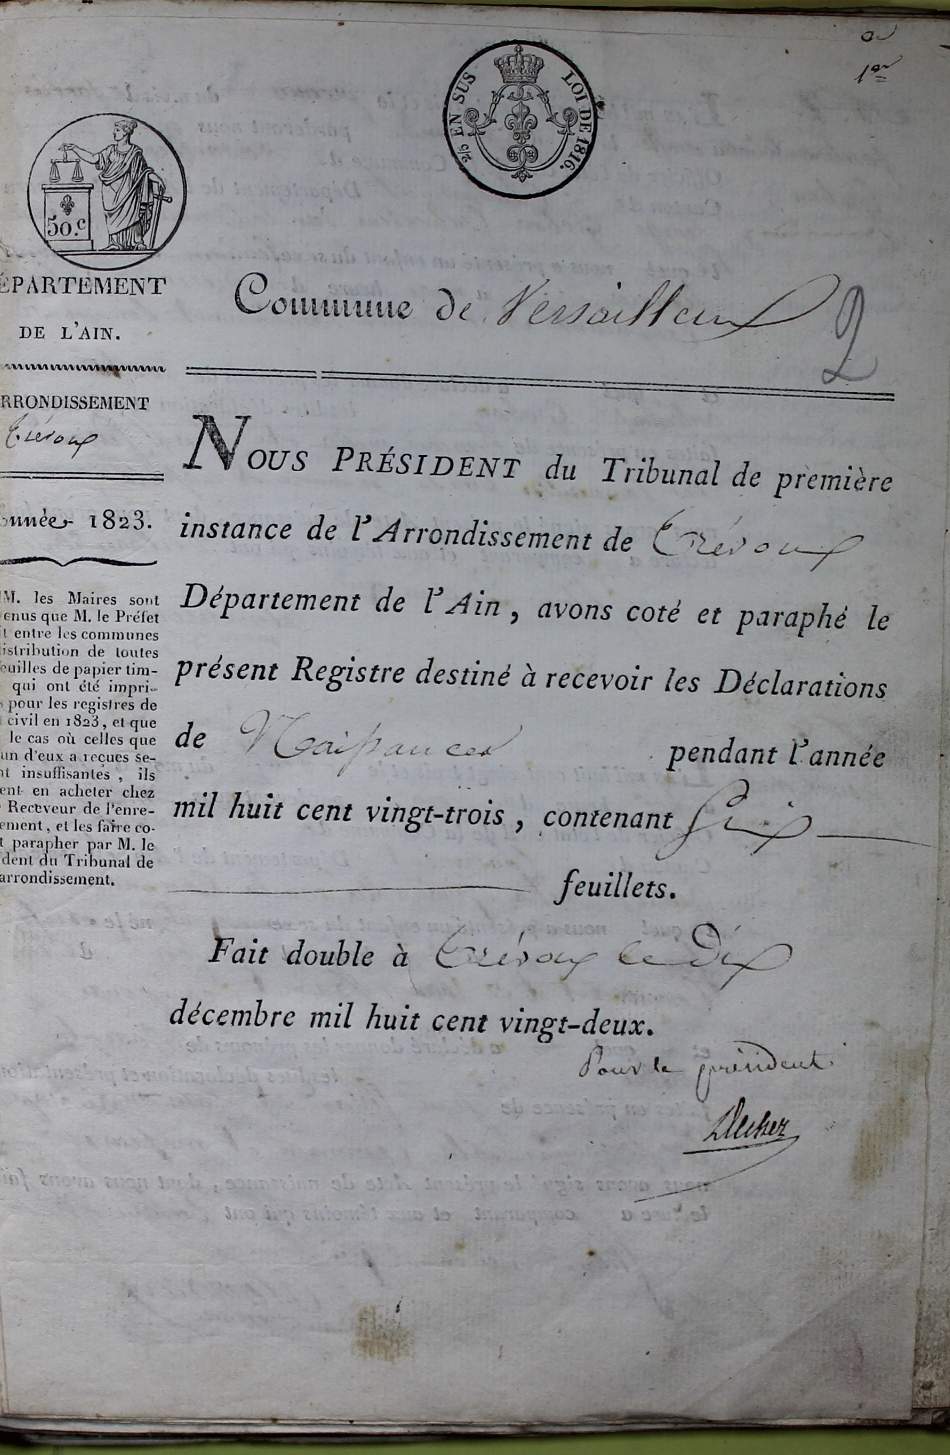 1er
2/5 EN SUS LOI DE 1816.
50.c
ÉPARTEMENT
DE L'AIN.
RRONDISSEMENT
Trévoux
nnée 1823.
M. les Maires sont
enus que M. le Préfet
t entre les communes
istribution de toutes
euilles de papier tim-
qui ont été impri-
pour les registres de
civil en 1823, et que
le cas où celles que
un d'eux a reçues se-
nt insuffisantes, ils
ent en acheter chez
Receveur de l'enre-
ement, et les faire co-
t parapher par M. le
dent du Tribunal de
arrondissement.
Commune de Versailleux
2
NOUS PRÉSIDENT du Tribunal de première
instance de l'Arrondissement de Trévoux
Département de l'Ain, avons coté et paraphé le
présent Registre destiné à recevoir les Déclarations
de Naissances pendant l'année
mil huit cent vingt-trois, contenant Six
feuillets.
Fait double à Trévoux le Dix
décembre mil huit cent vingt-deux.
Pour le président